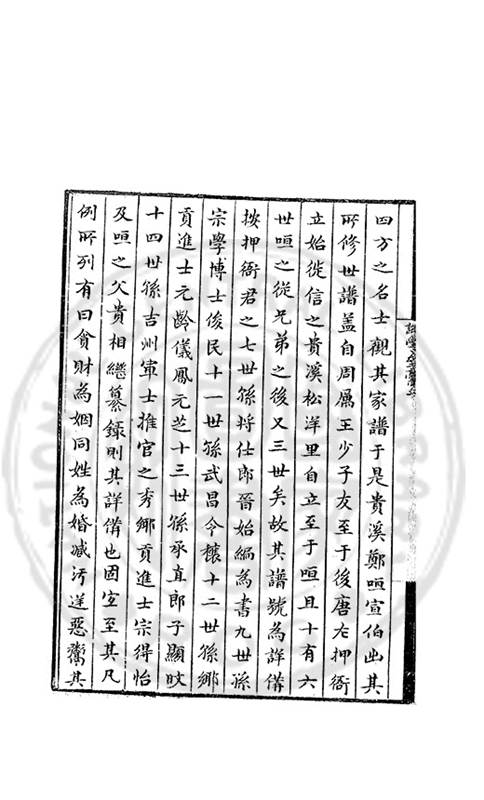 四方之名士觀其家譜于是貴溪鄭咺宣伯出其
所修世譜盖自周厲王少子友至于後唐左押衙
立始徙信之貴溪松洋里自立至于咺且十有六
世咺之從兄弟之後又三世矣故其譜號為詳備
按押衙君之七世孫將仕郎晉始編為書九世孫
宗學博士俊民十一世孫武昌令 十二世孫鄉
貢進士元齡儀鳳元芝十三世孫承直郎子顯
十四世孫吉州軍士推官之秀鄉貢進士宗得怡
及咺之父貴相繼纂録則其詳備也固宜至其凡
例所列有曰貪財為姻同姓為婚減汚逆惡鬻其